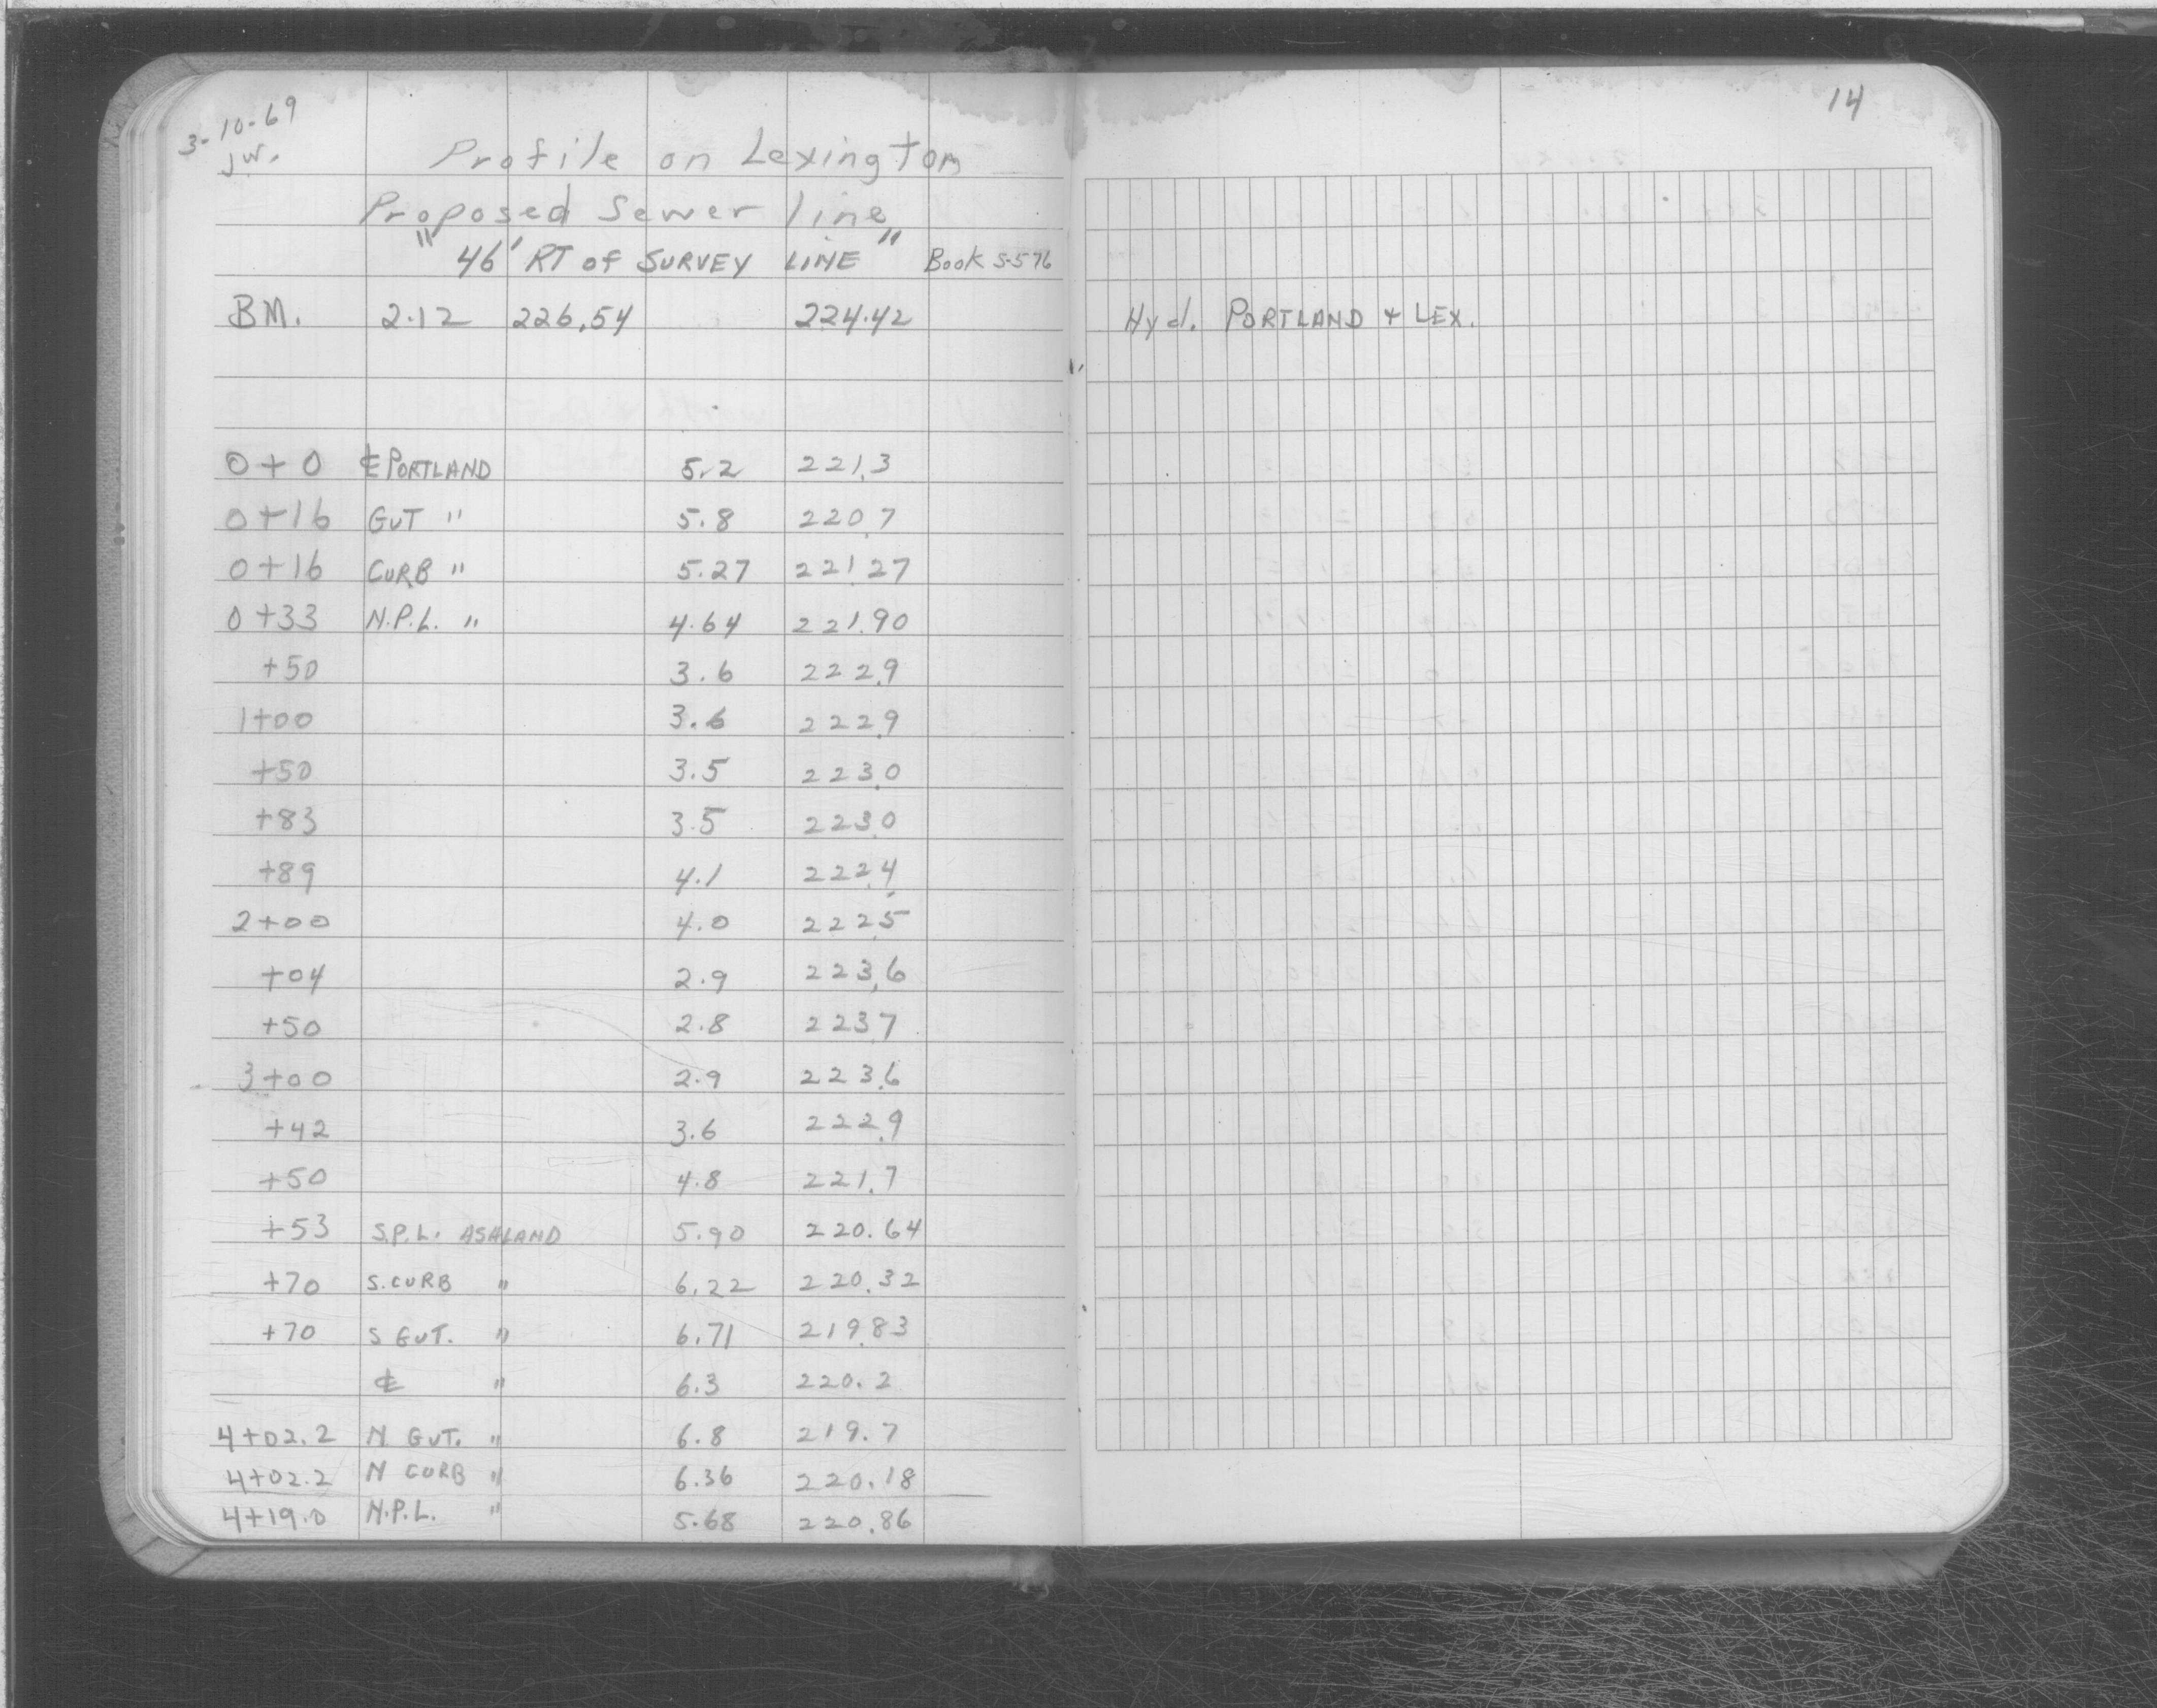 3-10-69
JW.
14
Profile on Lexington
Proposed Sewer line
"46' RT of SURVEY LINE" Book S-576
BM. 2.12 226.54 224.42 Hyd. PORTLAND + LEX.
0+0 ℄ PORTLAND 5.2 221.3
0+16 GUT " 5.8 220.7
0+16 CURB " 5.27 221.27
0+33 N.P.L. " 4.64 221.90
+50 3.6 222.9
1+00 3.6 222.9
+50 3.5 223.0
+83 3.5 223.0
+89 4.1 222.4
2+00 4.0 222.5
+04 2.9 223.6
+50 2.8 223.7
3+00 2.9 223.6
+42 3.6 222.9
+50 4.8 221.7
+53 S.P.L. ASHLAND 5.90 220.64
+70 S. CURB " 6.22 220.32
+70 S GUT. " 6.71 219.83
℄ " 6.3 220.2
4+02.2 N GUT. " 6.8 219.7
4+02.2 N CURB " 6.36 220.18
4+19.0 N.P.L. " 5.68 220.86